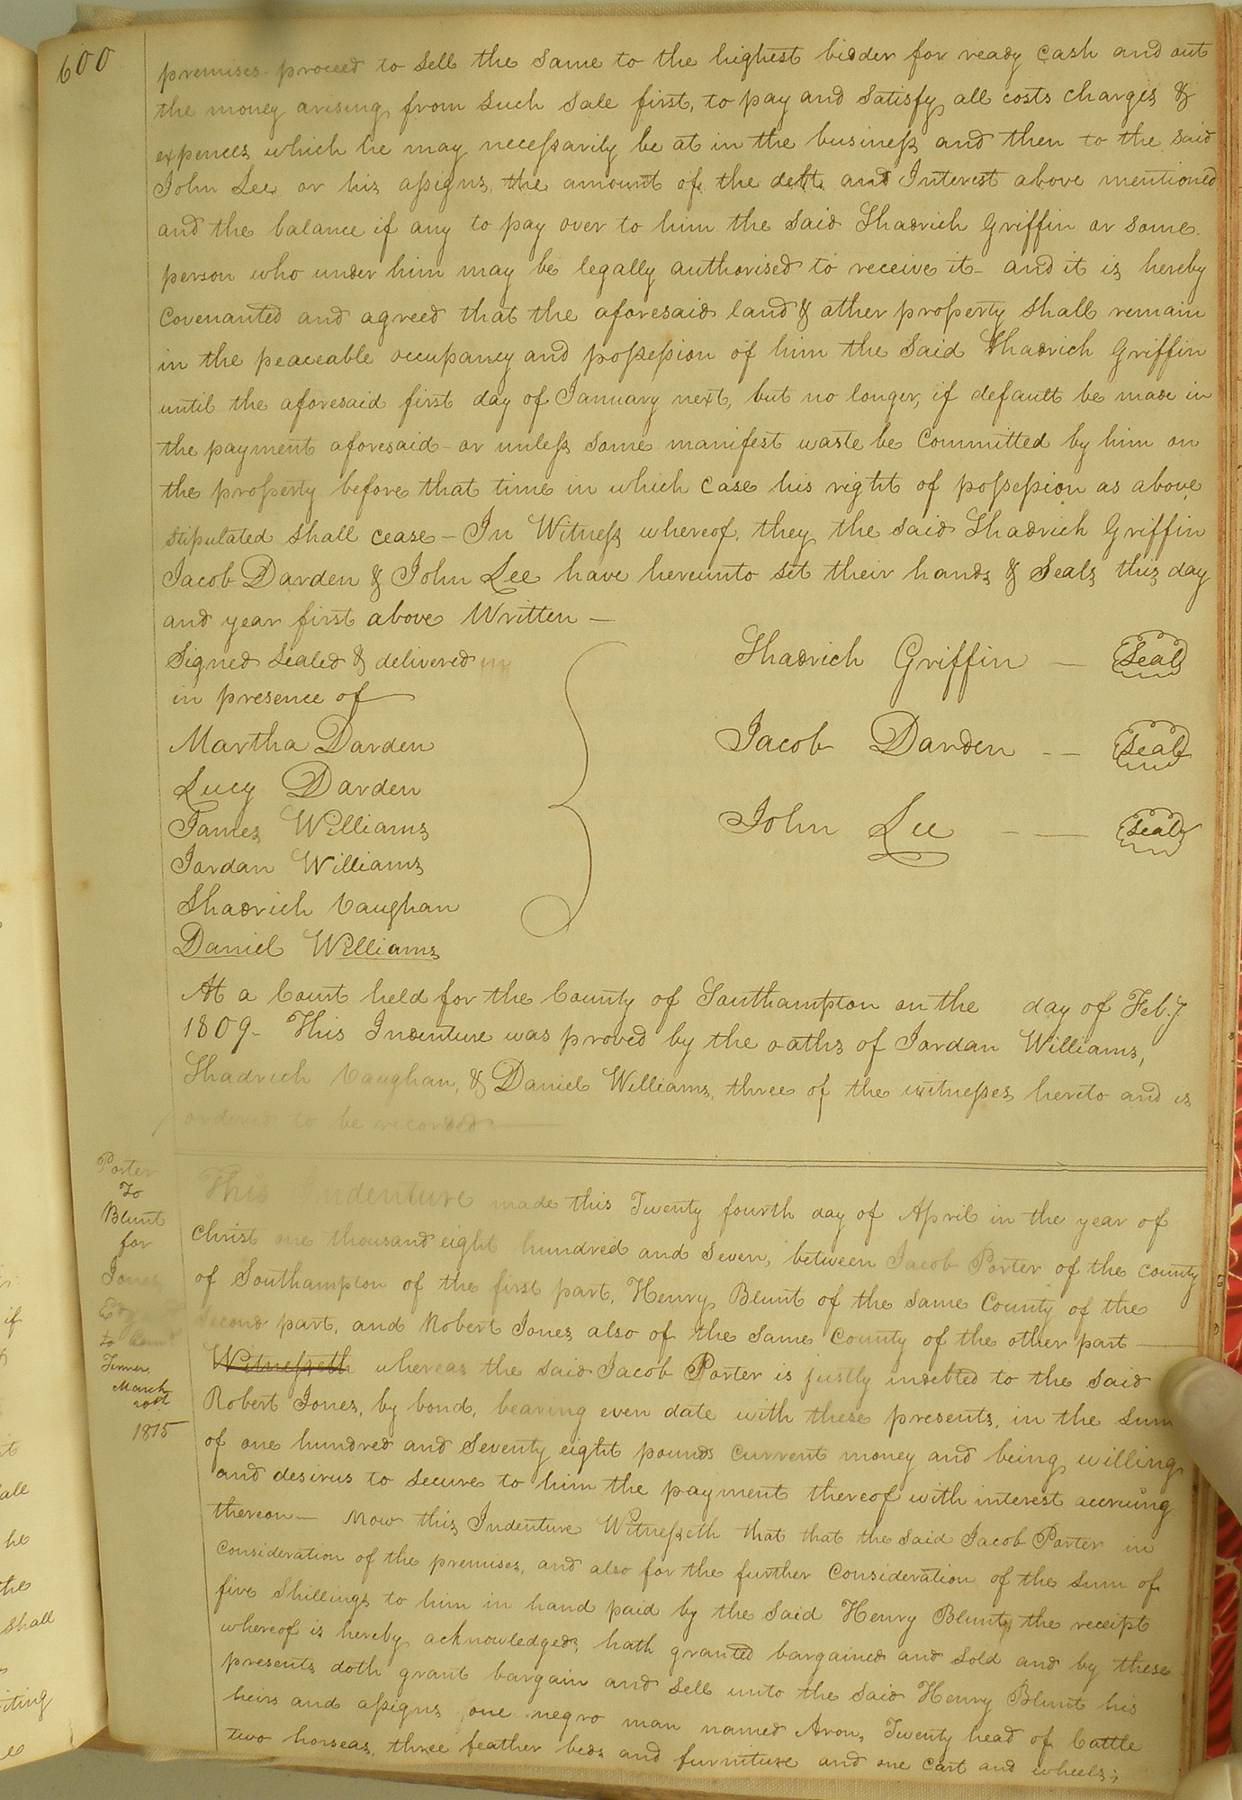 600
premises proceed to sell the same to the highest bidder for ready cash and out
the money arising from such sale first, to pay and satisfy all costs charges &
expences which he may necessarily be at in the business and then to the said
John Lee or his assigns, the amount of the debt and Interest above mentioned
and the balance if any to pay over to him the said Shadrich Griffin or some
person who under him may be legally authorised to receive it - and it is hereby
covenanted and agreed that the aforesaid land & other property shall remain
in the peaceable occupancy and possession of him the said Shadrich Griffin
until the aforesaid first day of January next, but no longer, if default be made in
the payment aforesaid - or unless some manifest waste be committed by him on
the property before that time in which case his right of possession as above
stipulated shall cease - In Witness whereof, they the said Shadrich Griffin
Jacob Darden & John Lee have hereunto set their hands & Seals this day
and year first above Written —
Signed Sealed & delivered
in presence of
Martha Darden
Lucy Darden
James Williams
Jordan Williams
Shadrich Vaughan
Daniel Williams
Shadrich Griffin — Seal
Jacob Darden -- Seal
John Lee - — Seal
At a Court held for the County of Southampton on the day of Feb.y
1809 - This Indenture was proved by the oaths of Jordan Williams,
Shadrich Vaughan, & Daniel Williams, three of the witnesses hereto and is
ordered to be recorded —
Porter
To
Blunt
for
Jones
to
March
1815
This Indenture made this Twenty fourth day of April in the year of
Christ one thousand eight hundred and seven, between Jacob Porter of the county
of Southampton of the first part, Henry Blunt of the same County of the
second part, and Robert Jones also of the same county of the other part —
Witnesseth whereas the said Jacob Porter is justly indebted to the said
Robert Jones, by bond, bearing even date with these presents, in the sum
of one hundred and seventy eight pounds current money and being willing
and desirus to secure to him the payment thereof with interest accruing
thereon — Now this Indenture Witnesseth that that the said Jacob Porter in
consideration of the premises, and also for the further consideration of the sum of
five shillings to him in hand paid by the said Henry Blunt, the receipt
whereof is hereby acknowledged, hath granted bargained and sold and by these
presents doth grant bargain and sell unto the said Henry Blunt his
heirs and assigns, one negro man named Aron, Twenty head of cattle
two horseas, three feather beds and furniture and one cart and wheels;